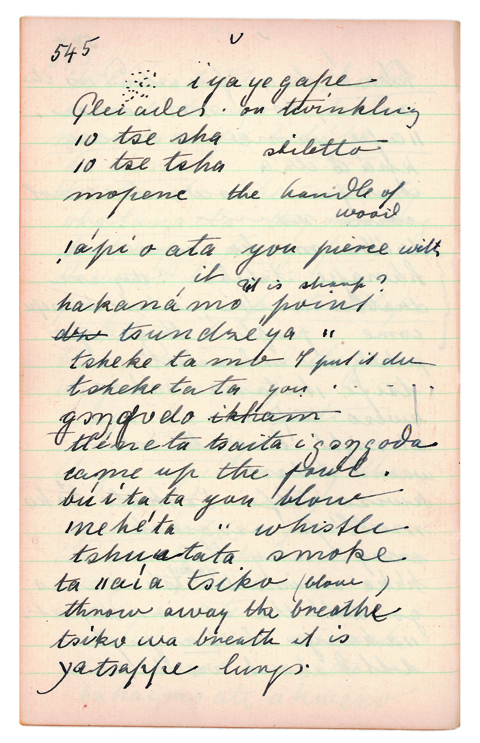 545
iyayegape
Pleiades. on twinkling
10 tse sha
stiletto
10 tse tsha
mopene the handle of
wood
!ápi o ata you pierce with
it
it is sharp?
hakanámo point
tsundzeya "
tsheke ta mb I put it
tshehe tata you
gɔŋgodo ikham
tléneta tsaita igɔŋgoda
came up the fowl.
búitata you blow
mehéta " whistle
tshuatata smoke
ta "aía tsiko (blow)
throw away the breathe
tsiko wa breath it is
yatsappe lungs.